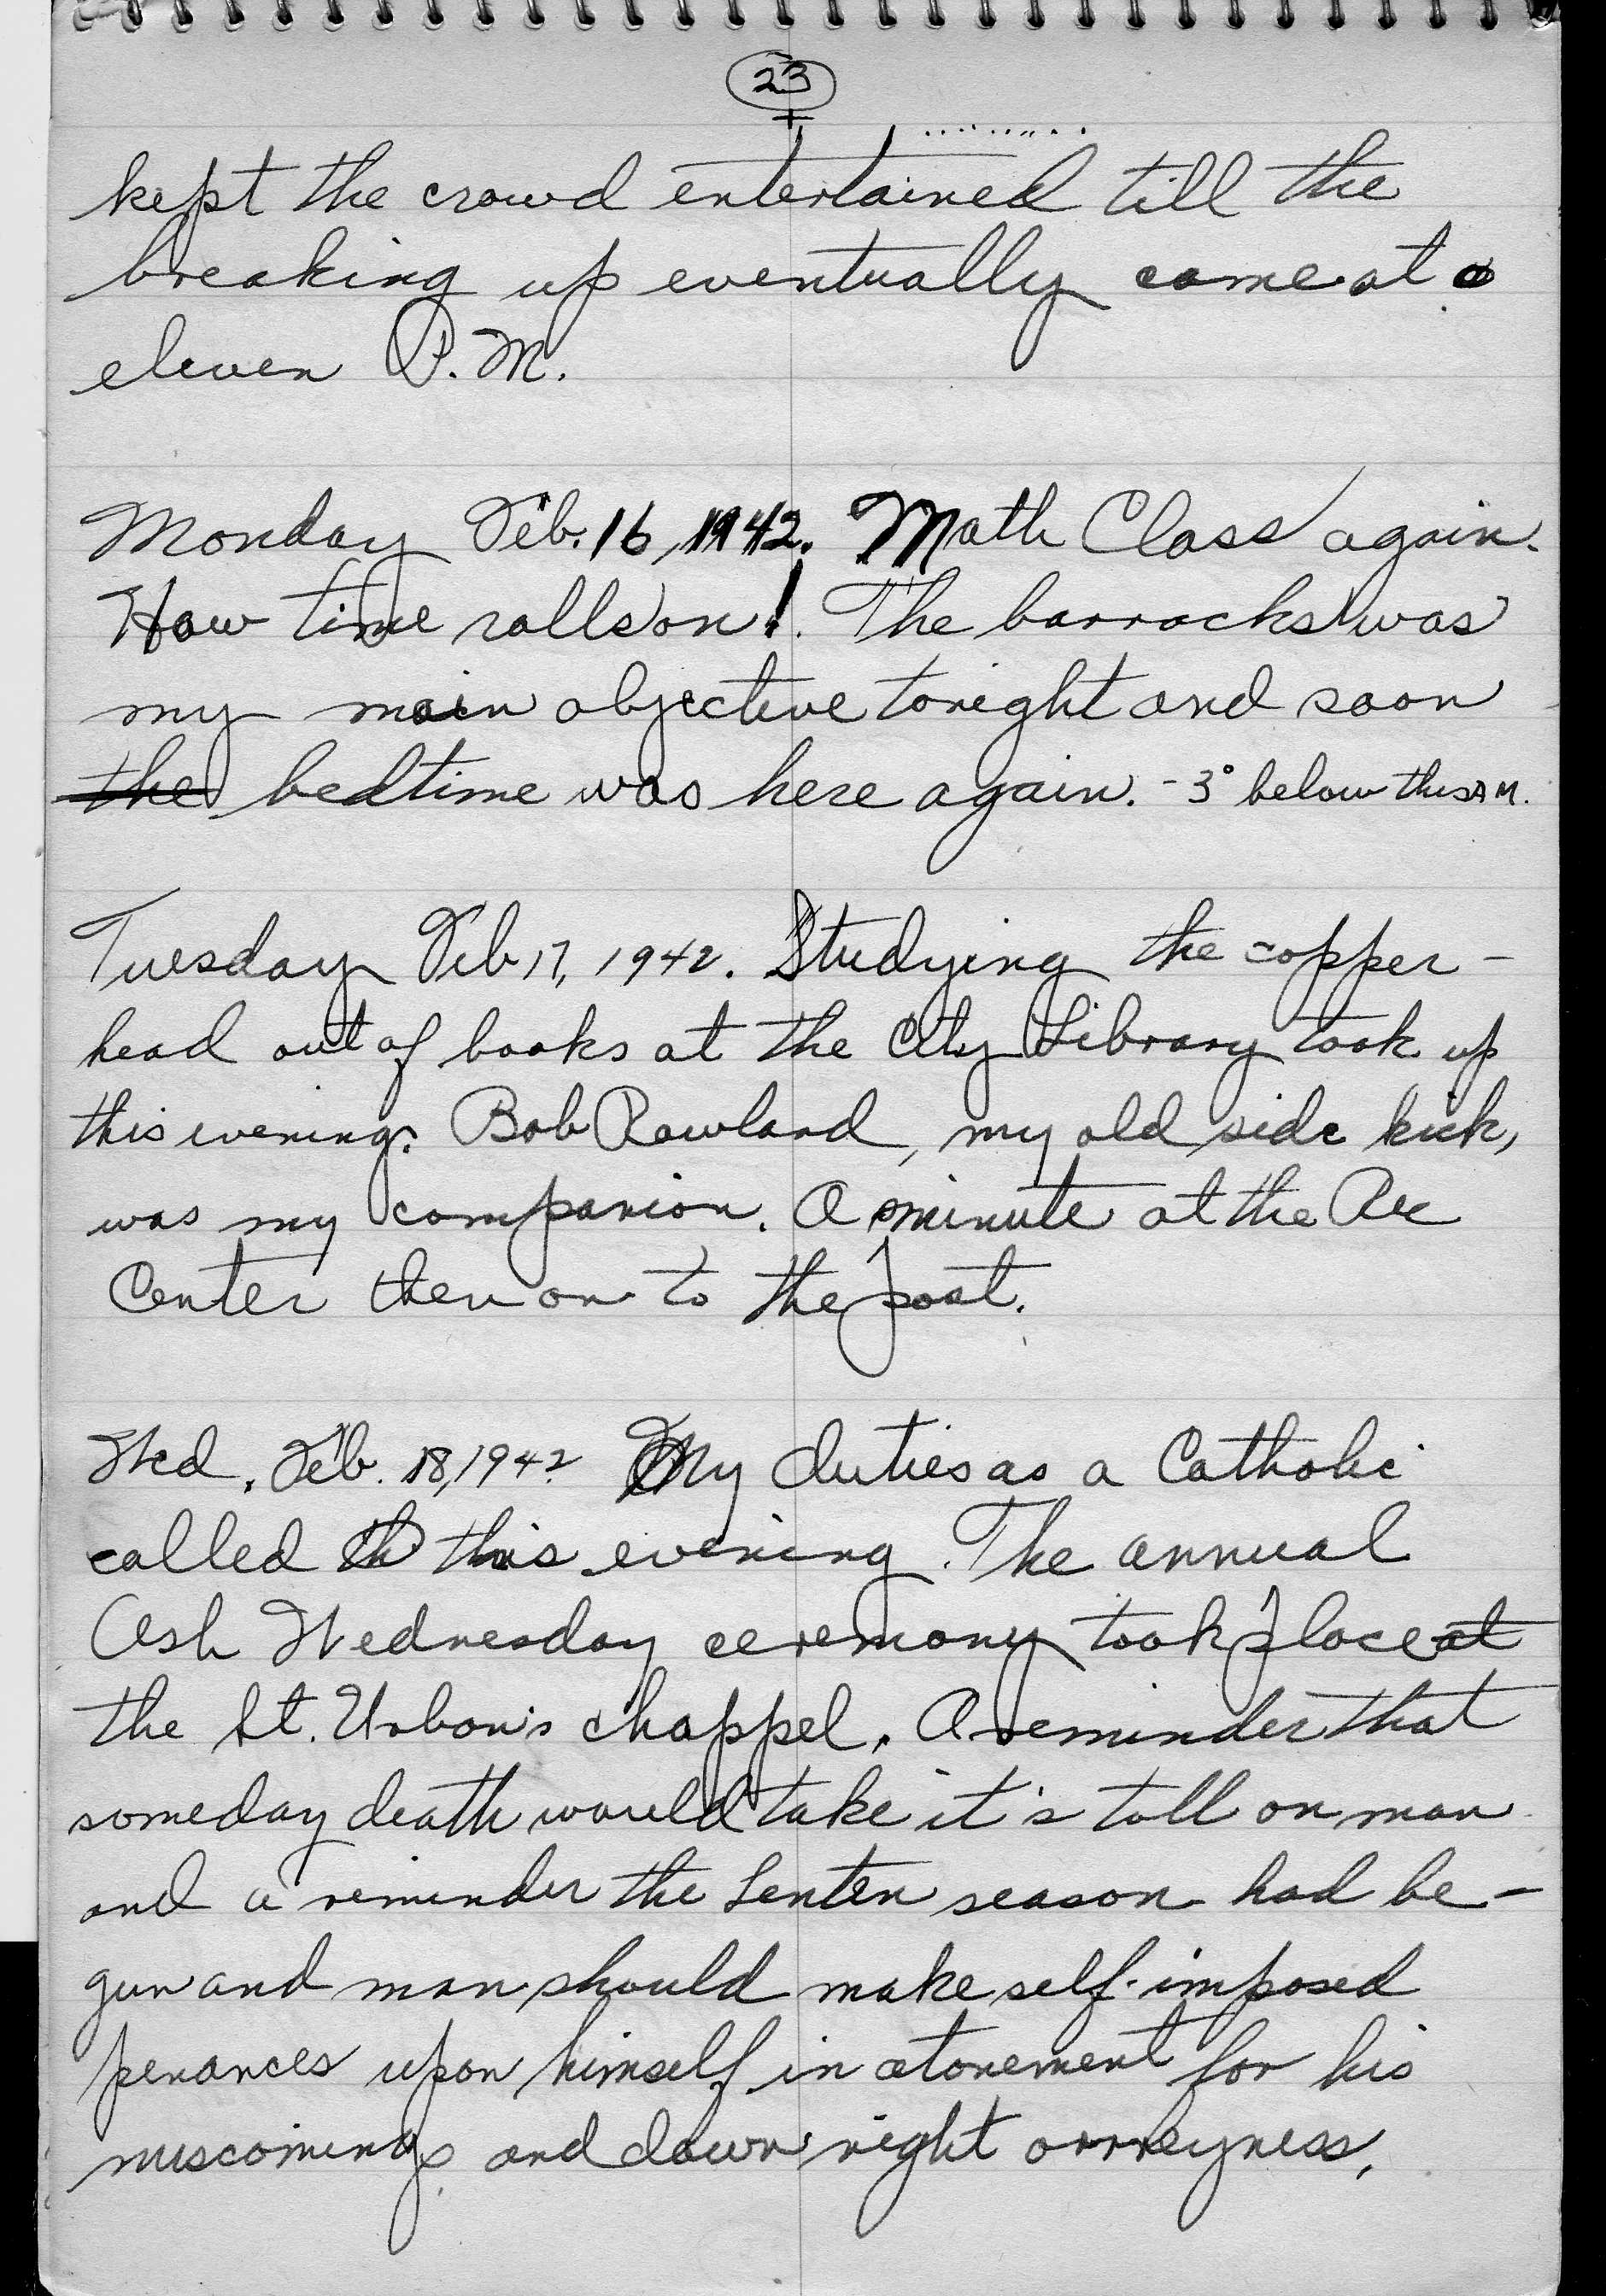 23
kept the crowd entertained till the
breaking up eventually came at
eleven P.M.
Monday Feb. 16, 1942. Math Class again.
How time rolls on! The barracks was
my main objective tonight and soon
the bedtime was here again. -3° below this A.M.
Tuesday Feb 17, 1942. Studying the copper-
head out of books at the City Library took up
this evening. Bob Rowland, my old side kick,
was my companion. A minute at the Rec
Center then on to the post.
Wed. Feb. 18, 1942 My duties as a Catholic
called th this evening. The annual
Ash Wednesday ceremony took place at
the St. Urban's chappel. A reminder that
someday death would take it's toll on man
and a reminder the Lenten season had be-
gun and man should make self-imposed
penances upon himself in atonement for his
miscomings and down right orrneyness.